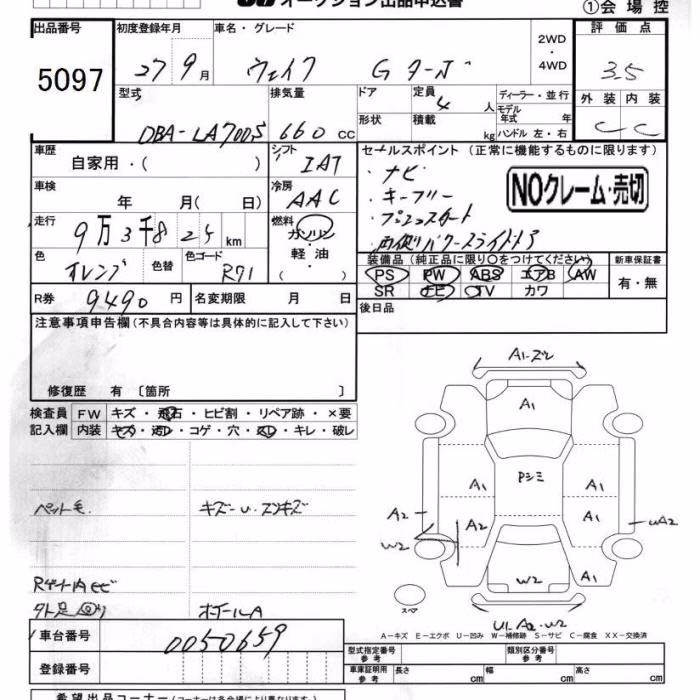 オークション出品申込書
①会場控
出品番号 初度登録年月 車名・グレード 2WD・4WD 評価点
5097 27 9月 ウェイク Gターボ 3.5
型式 排気量 ドア 定員 4 人 ディーラー・並行 外装 内装
モデル年式 年
DBA-LA700S 660 CC 形状 積載 kg ハンドル 左・右 C C
車歴 自家用・( ) シフト IAT セールスポイント (正常に機能するものに限ります)
・ナビ
車検 年 月( 日) 冷房 AAC ・キーフリー NOクレーム・売切
・プッシュスタート
走行 9万3千8 24 km 燃料 ガソリン・軽油・( ) ・両側パワースライドドア
色 オレンジ 色替 色コード R71 装備品 (純正品に限り○をつけてください) 新車保証書
PS PW ABS エアB AW 有・無
SR ナビ TV カワ
R券 9490 円 名変期限 月 日 後日品
注意事項申告欄 (不具合内容等は具体的に記入して下さい)
修復歴 有 〔箇所 〕
検査員 FW キズ・飛石・ヒビ割・リペア跡・×要
記入欄 内装 キズ・汚レ・コゲ・穴・スレ・キレ・破レ
A1
A1
Pシミ
A1 A1
ペット毛 A2 A2 A1 UA2
W2
Rゲート内サビ W2 A1
スペア
U1.A2.W2
A-キズ E-エクボ U-凹み W-補修跡 S-サビ C-腐食 XX-交換済
車台番号 0050659
型式指定番号 参考 類別区分番号 参考
登録番号 車庫証明用 参考 長さ cm 幅 cm 高さ cm
希望出品コーナー